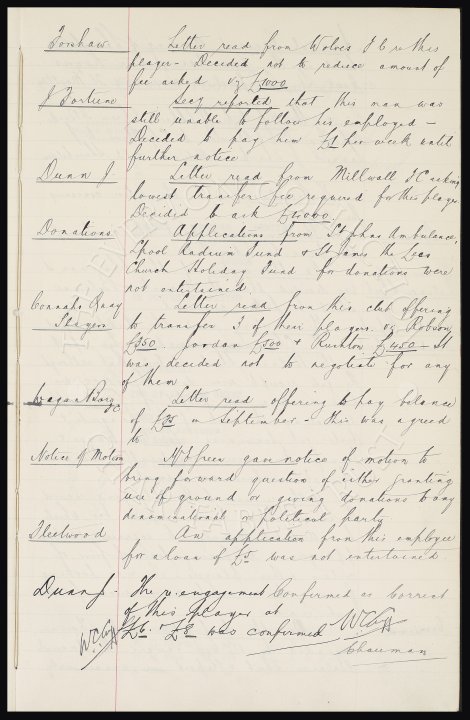 Forshaw Letter read from Wolves F C re this
player - Decided not to reduce amount of
fee asked viz £1000
J Fortune Secy reported that this man was
still unable to follow his employed -
Decided to pay him £1 per week until
further notice
Dunn J. Letter read from Millwall F C asking
lowest transfer fee required for this player
Decided to ask £4000
Donations Applications from St Johns Ambulance,
L'pool Radium Fund & St James the Less
Church Holiday Fund for donations were
not entertained
Connahs Quay Letter read from this club offering
Players to transfer 3 of their players. viz Robson
£350. Jordan £500 & Rushton £450 - It
was decided not to negotiate for any
of them
Letter read offering to pay balance
of £75 in September - this was agreed
to
Notice of Motion Mr Green gave notice of motion to
bring forward question of either granting
use of ground or giving donations to any
denominational or political party
Fleetwood An application from this employee
for a loan of £5 was not entertained
Dunn J. The re-engagement Confirmed as correct
of this player at
£6. & £8 was confirmed
Chairman